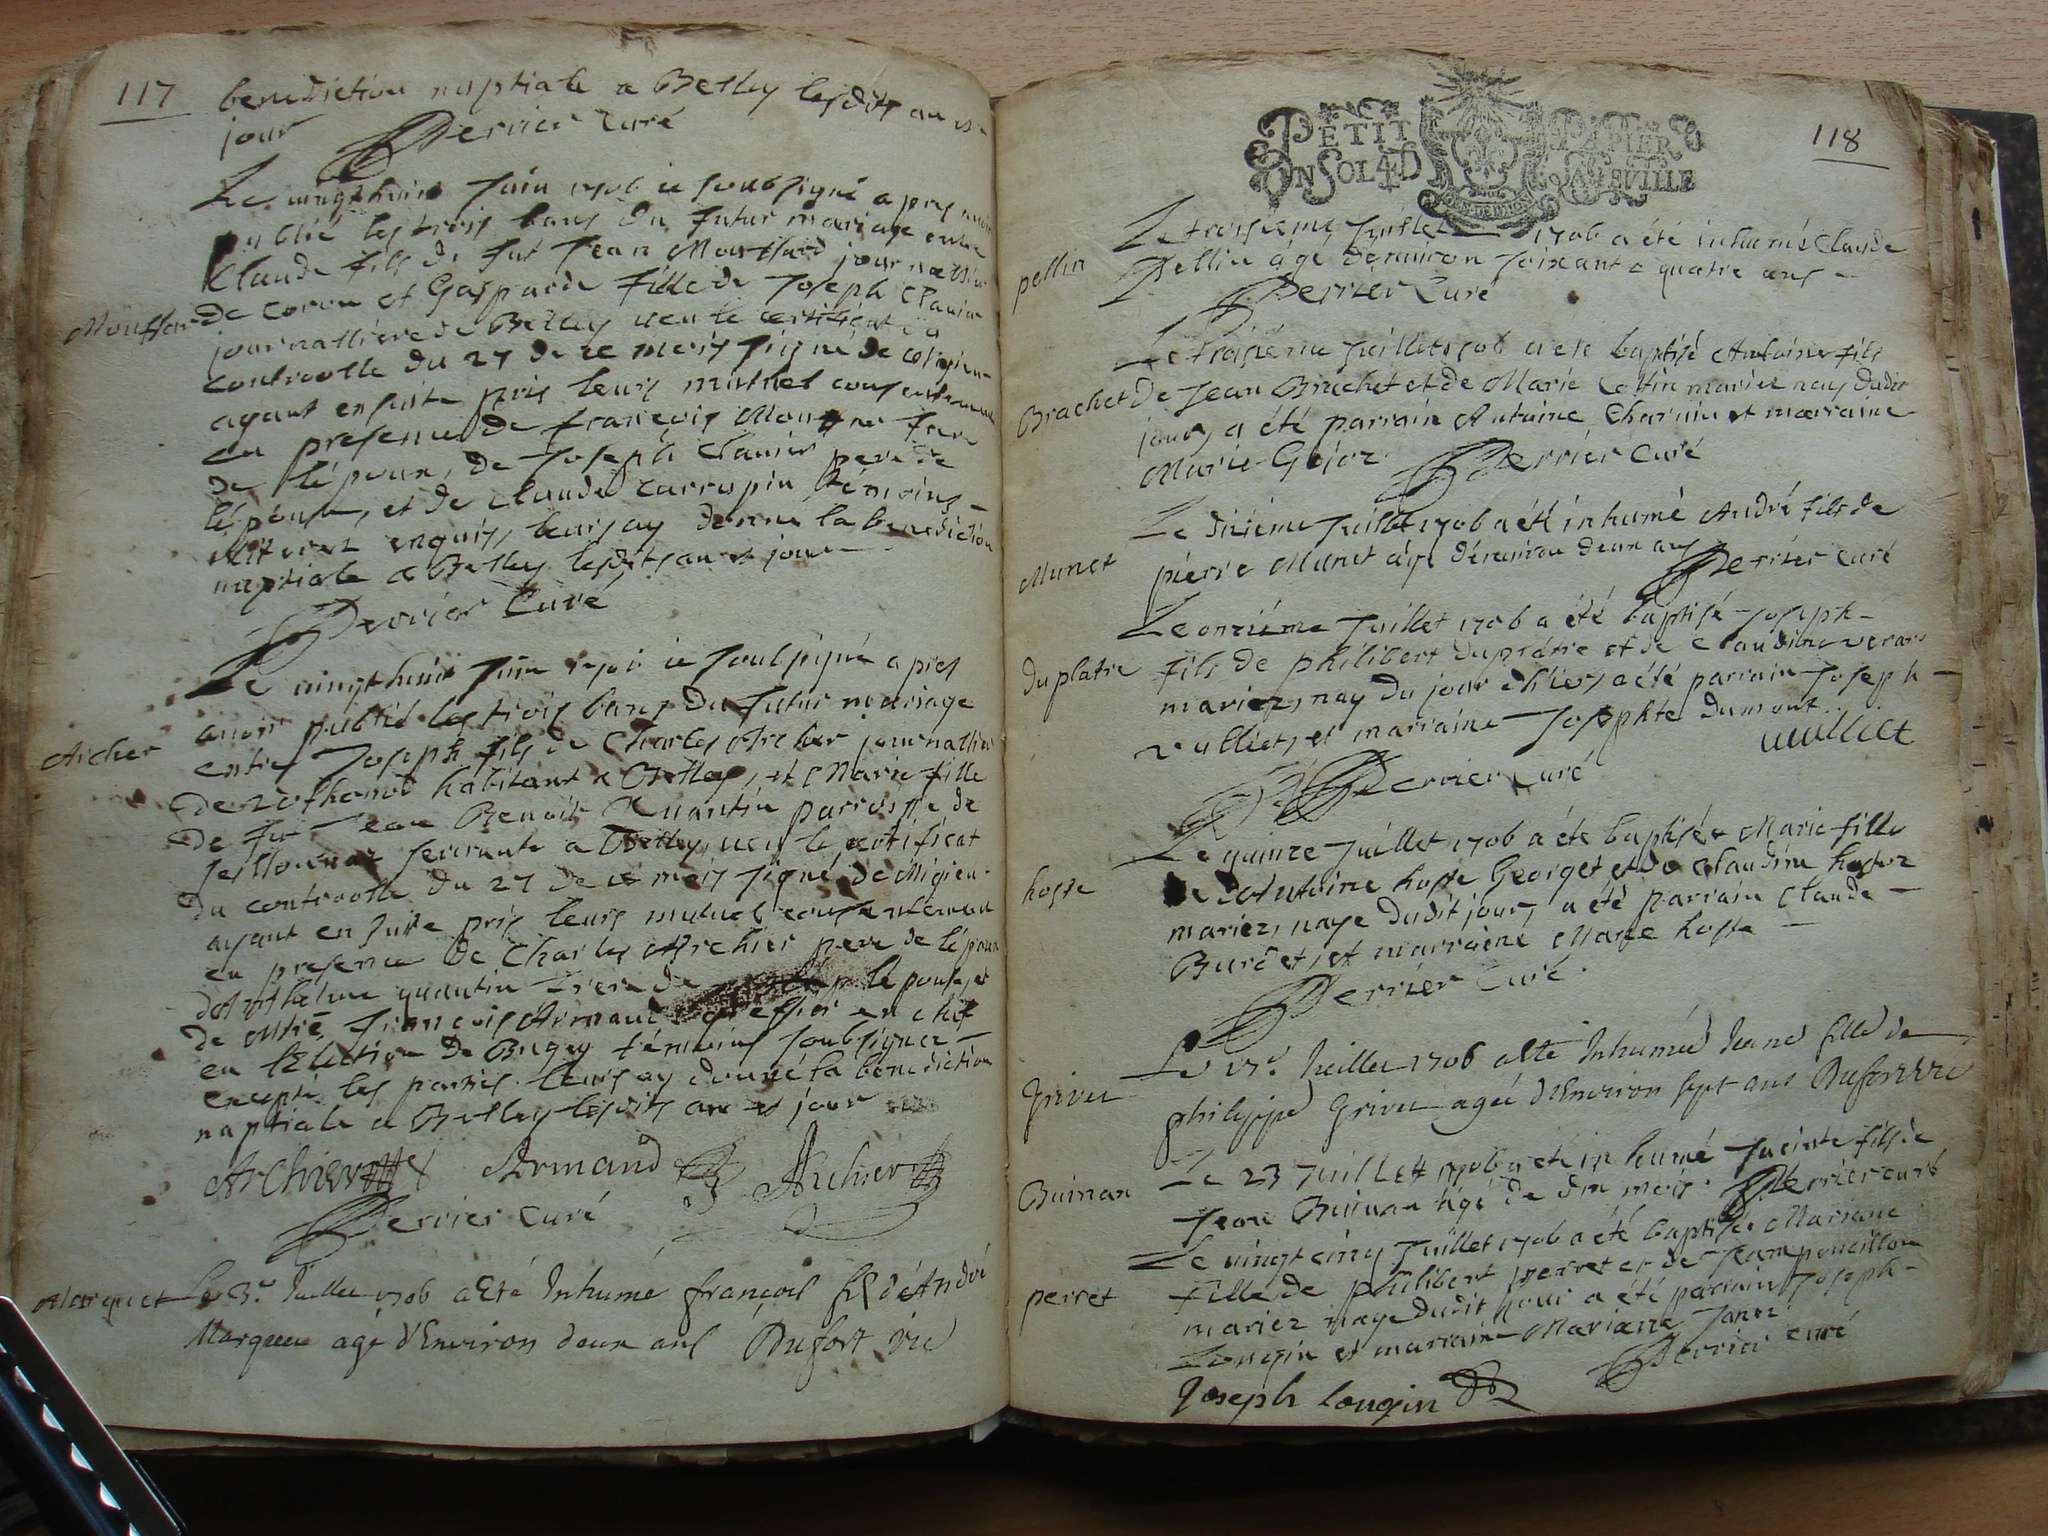 117
benediction nuptiale a Belley lesdits an et
jour
Perrier Curé
Le vingthuit Juin 1706 ie soubsigné apres avoir
publié les trois bans du futur mariage entre
Claude fils de fut Jean Mouthard journallier
Mouffar
de coron et Gasparde fille de Joseph Clavier
journalliere de Belley veu le certificat du
controolle du 27 de ce mois signé de Migieu
ayant ensuite pris leurs mutuel consentement
en presence de françois frere
de lépoux, de Joseph Clavier pere de
lépouse, et de Claude Carrepin témoins
enquis, leurs ay donné la benediction
nuptiale a Belley lesdits an et jour
Perrier Curé
Le vingthuit Juin 1706 ie soubsigné apres
avoir publié les trois bans du futur mariage
Archer
entre Joseph fils de Charles Archer journallier
de habitant a Belley, et Marie fille
de fut Jean Benoit Quantin parroisse de
servante a Belley, veu le certificat
du controolle du 27 de ce mois signé de Migieu
ayant en suite pris leurs mutuel consentement
en presence de Charles Archier pere de lépoux
dAnthelme quantin frere de lépouse, et
de Mtre françois Armand greffier en chef
en lElection de Bugey témoins soubsignez
excepté les parties leurs ay donné la bénédiction
nuptiale a Belley lesdits an et jour
Archier Armand Archier
Perrier Curé
Marquet
Le 3e Juillet 1706 a Eté Inhumé françois fils dAndré
Marquet agé dEnviron deux ans Dufort vic
PETIT PAPIER
UN SOL 4 D LA FEUILLE
118
pellin
Le troisieme Juillet 1706 a été inhumé Claude
Pellin âgé denviron soixante quatre ans
Perrier Curé
Le troisiéme Juillet 1706 a été baptisé Antoine fils
Brachet
de Jean Brachet et de Marie Cottin mariez nay dudit
jour, a été parrain Antoine Charvin et marraine
Marie Gojoz
Perrier Curé
Le diziéme Juillet 1706 a été inhumé André fils de
Munet
pierre Munet âgé dénviron deux ans Perrier Curé
Le onziéme Juillet 1706 a été baptisé Joseph
Duplatre
fils de philibert duplatre et de Claudine
mariez, nay du jour dhier, a été parrain Joseph
vulliet, et marraine Josephte dumont.
vuilliet
Perrier Curé
Le quinze Juillet 1706 a été baptisée Marie fille
hoste
de dAntoine hoste Georget et de Claudine
mariez, naye dudit jour, a été parrain Claude
Burdet, et marraine Marie hoste
Perrier Curé.
Grivet
Le 17e Juillet 1706 a Eté Inhumée Jeane fille de
philippe Grivet agée dEnviron sept ans Dufort vic
Buinan
Le 23 Juillet 1706 a été inhumé Jacinte fils de
Jean Buinan âgé de dix mois. Perrier curé
Le vingt cinq Juillet 1706 a été baptisée Mariane
perret
fille de philibert perret et de Jeane
mariez naye dudit jour a été parrain Joseph
Longin et marraine Mariane
Perrier curé
Joseph longin